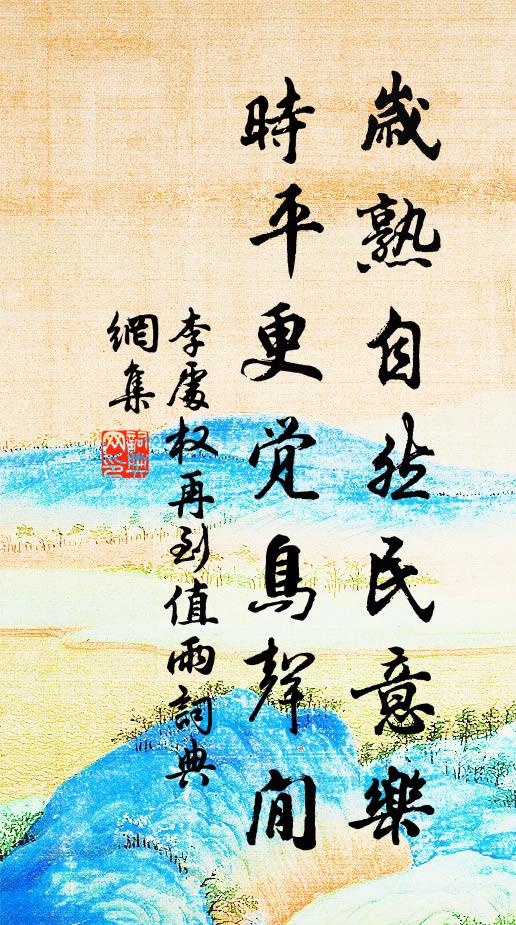 歲熟自然民意樂
時平更覺鳥聲閒
李處权再到值雨詞典
網集
詞典網印